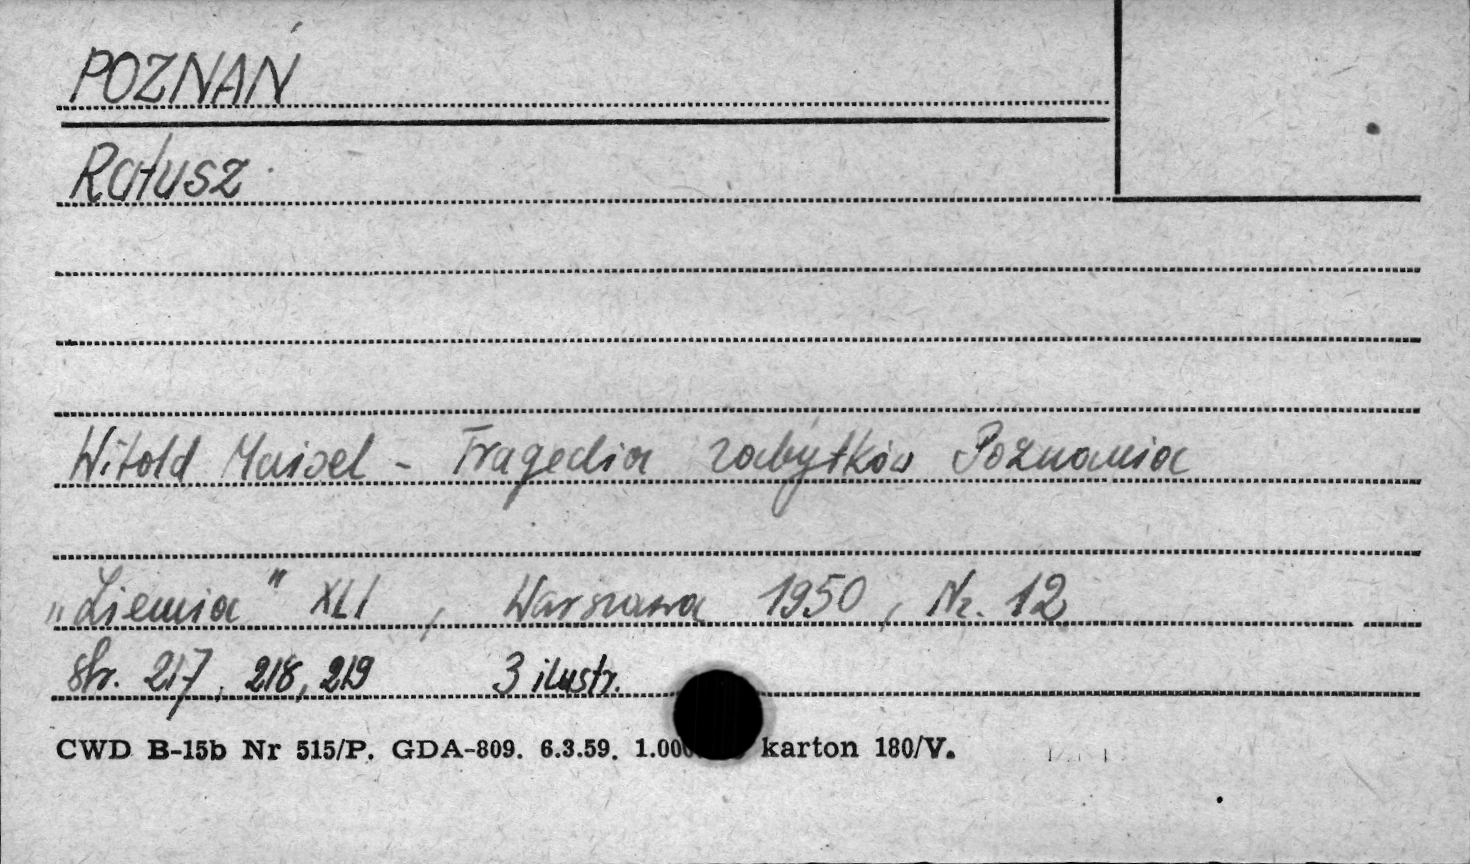 POZNAŃ
Ratusz
Witold Maisel - Tragedia zabytków Poznania
„Ziemia" XLI, Warszawa 1950, Nr. 12
str. 217, 218, 219 3 ilustr.
CWD B-15b Nr 515/P. GDA-809. 6.3.59. karton 180/V.